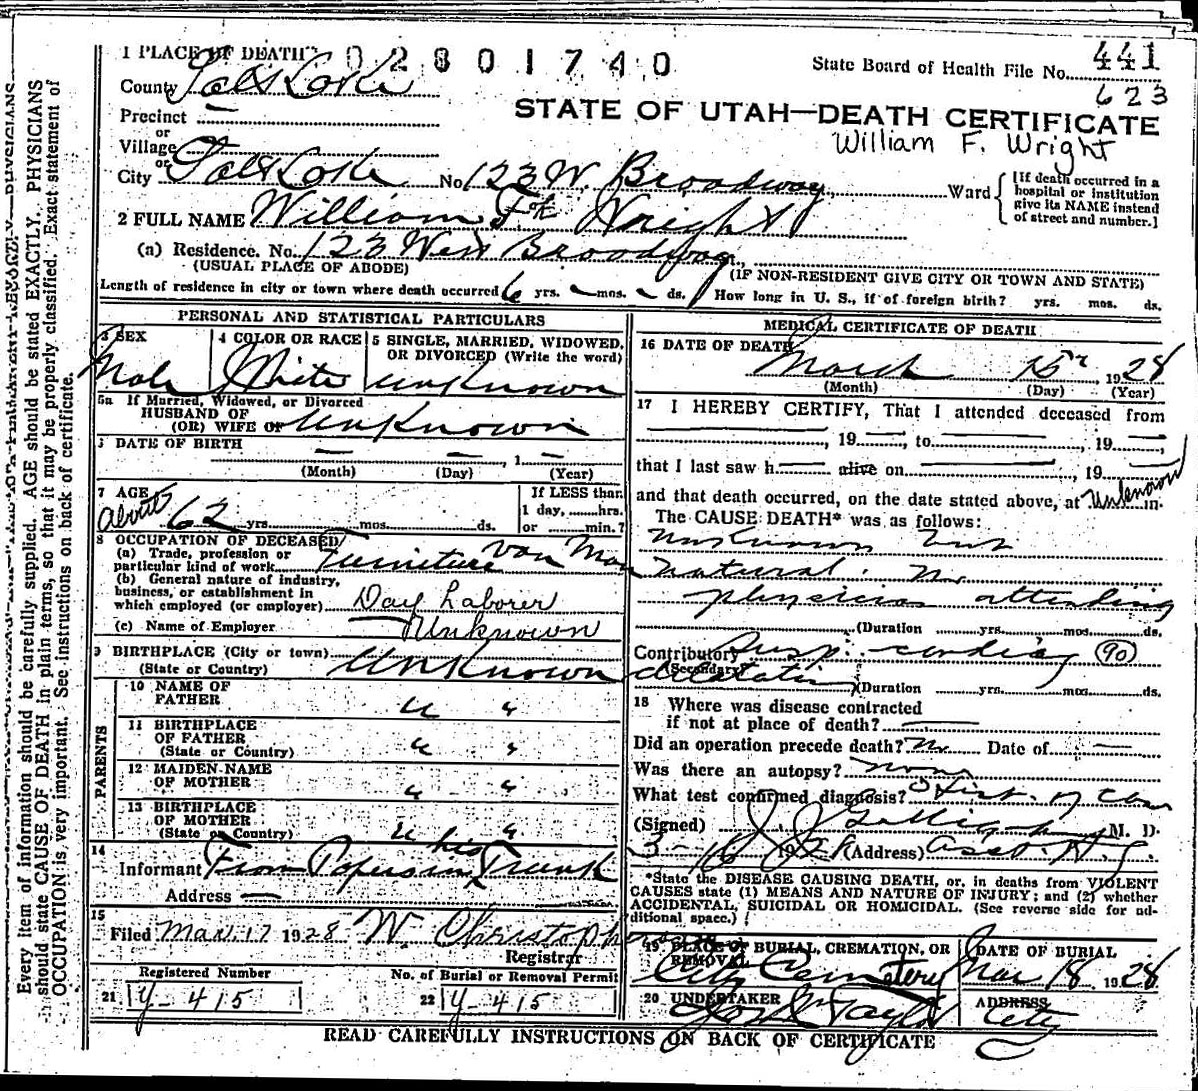 1 PLACE OF DEATH 02801740
State Board of Health File No. 441
623
County Salt Lake
STATE OF UTAH—DEATH CERTIFICATE
William F. Wright
Precinct —
or
Village —
or
City Salt Lake No. 123 W. Broadway Ward
[If death occurred in a hospital or institution give its NAME instead of street and number.]
2 FULL NAME William F. Wright
(a) Residence. No. 123 West Broadway
(USUAL PLACE OF ABODE) (IF NON-RESIDENT GIVE CITY OR TOWN AND STATE)
Length of residence in city or town where death occurred 6 yrs. — mos. — ds. How long in U. S., if of foreign birth? yrs. mos. ds.
PERSONAL AND STATISTICAL PARTICULARS
3 SEX
Male
4 COLOR OR RACE
White
5 SINGLE, MARRIED, WIDOWED, OR DIVORCED (Write the word)
Unknown
5a If Married, Widowed, or Divorced
HUSBAND OF
(OR) WIFE OF Unknown
DATE OF BIRTH
— — , 1 —
(Month) (Day) (Year)
7 AGE
About 62 yrs. mos. ds.
If LESS than
1 day, hrs.
or min.?
8 OCCUPATION OF DECEASED
(a) Trade, profession or
particular kind of work Furniture Van Man
(b) General nature of industry,
business, or establishment in
which employed (or employer) Day Laborer
(c) Name of Employer Unknown
9 BIRTHPLACE (City or town)
(State or Country) Unknown
PARENTS
10 NAME OF
FATHER " "
11 BIRTHPLACE
OF FATHER
(State or Country) " "
12 MAIDEN NAME
OF MOTHER " "
13 BIRTHPLACE
OF MOTHER
(State or Country) " "
14
Informant From Papers in his Trunk
Address —
15
Filed Mar. 17 1928 W. Christoph
Registrar
Registered Number
21 Y-415
No. of Burial or Removal Permit
22 Y-415
MEDICAL CERTIFICATE OF DEATH
16 DATE OF DEATH
March 15 , 1928
(Month) (Day) (Year)
17 I HEREBY CERTIFY, That I attended deceased from
, 19 , to , 19
that I last saw h alive on , 19
and that death occurred, on the date stated above, at Unknown m.
The CAUSE DEATH* was as follows:
Unknown but
natural. No
physician attending
(Duration yrs. mos. ds.
Contributory Susp. cardiac (90)
(Secondary) dilatation (Duration yrs. mos. ds.
18 Where was disease contracted
if not at place of death? —
Did an operation precede death? No Date of —
Was there an autopsy? none
What test confirmed diagnosis? Hist. of case
(Signed) J J Galligan M. D.
3-16 1928 (Address)
*State the DISEASE CAUSING DEATH, or, in deaths from VIOLENT
CAUSES state (1) MEANS AND NATURE OF INJURY; and (2) whether
ACCIDENTAL, SUICIDAL OR HOMICIDAL. (See reverse side for ad-
ditional space.)
19 PLACE OF BURIAL, CREMATION, OR
REMOVAL
City Cemetery
DATE OF BURIAL
Mar 18 1928
20 UNDERTAKER
Jos. Wm Taylor
ADDRESS
City
READ CAREFULLY INSTRUCTIONS ON BACK OF CERTIFICATE
Every item of information should be carefully supplied. AGE should be stated EXACTLY. PHYSICIANS
should state CAUSE OF DEATH in plain terms, so that it may be properly classified. Exact statement of
OCCUPATION is very important. See instructions on back of certificate.